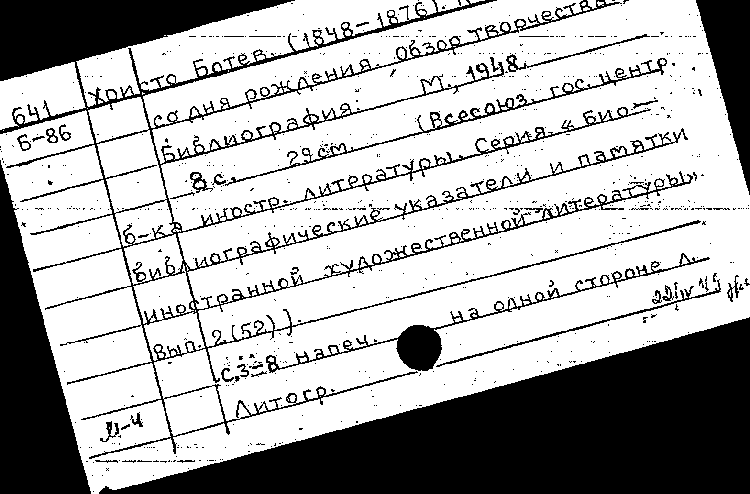 Христо Ботев. (1848–1876).
641
со дня рождения. Обзор творчества.
Б-86
Библиография.
М., 1948.
8с. 29см. (Всесоюз. гос. центр.
б-ка иностр. литературы. Серия. « Био-
библиографические указатели и памятки
иностранной художественной литературы».
Вып. 2(52)).
с.3-8 напеч. на одной стороне л.
Литогр.
М-4